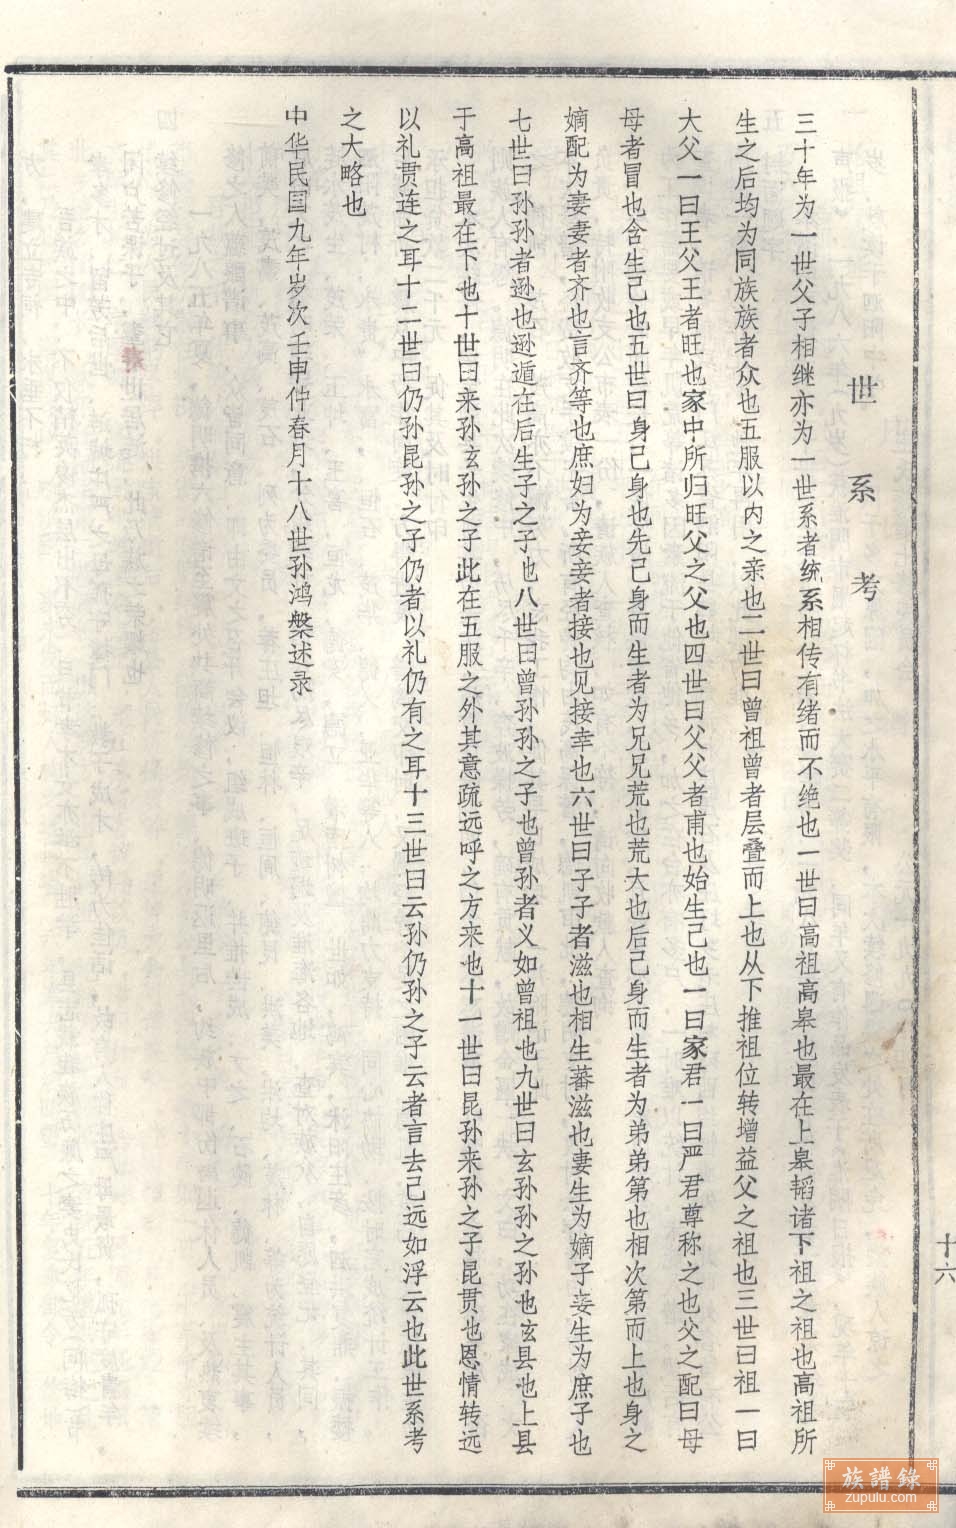 世系考
三十年为一世父子相继亦为一世系者统系相传有绪而不绝也一世曰高祖高皋也最在上皋韬诸下祖之祖也高祖所
生之后均为同族族者众也五服以内之亲也二世曰曾祖曾者层叠而上也从下推祖位转增益父之祖也三世曰祖一曰
大父一曰王父王者旺也家中所归旺父之父也四世曰父父者甫也始生己也一曰家君一曰严君尊称之也父之配曰母
母者冒也含生己也五世曰身己身也先己身而生者为兄兄荒也荒大也后己身而生者为弟弟第也相次第而上也身之
嫡配为妻妻者齐也言齐等也庶妇为妾妾者接也见接幸也六世曰子子者滋也相生蕃滋也妻生为嫡子妾生为庶子也
七世曰孙孙者逊也逊遁在后生子之子也八世曰曾孙孙之子也曾孙者义如曾祖也九世曰玄孙孙之孙也玄县也上县
于高祖最在下也十世曰来孙玄孙之子此在五服之外其意疏远呼之方来也十一世曰昆孙来孙之子昆贯也恩情转远
以礼贯连之耳十二世曰仍孙昆孙之子仍者以礼仍有之耳十三世曰云孙仍孙之子云者言去己远如浮云也此世系考
之大略也
中华民国九年岁次壬申仲春月十八世孙鸿槃述录
十六
族譜錄
zupulu.com